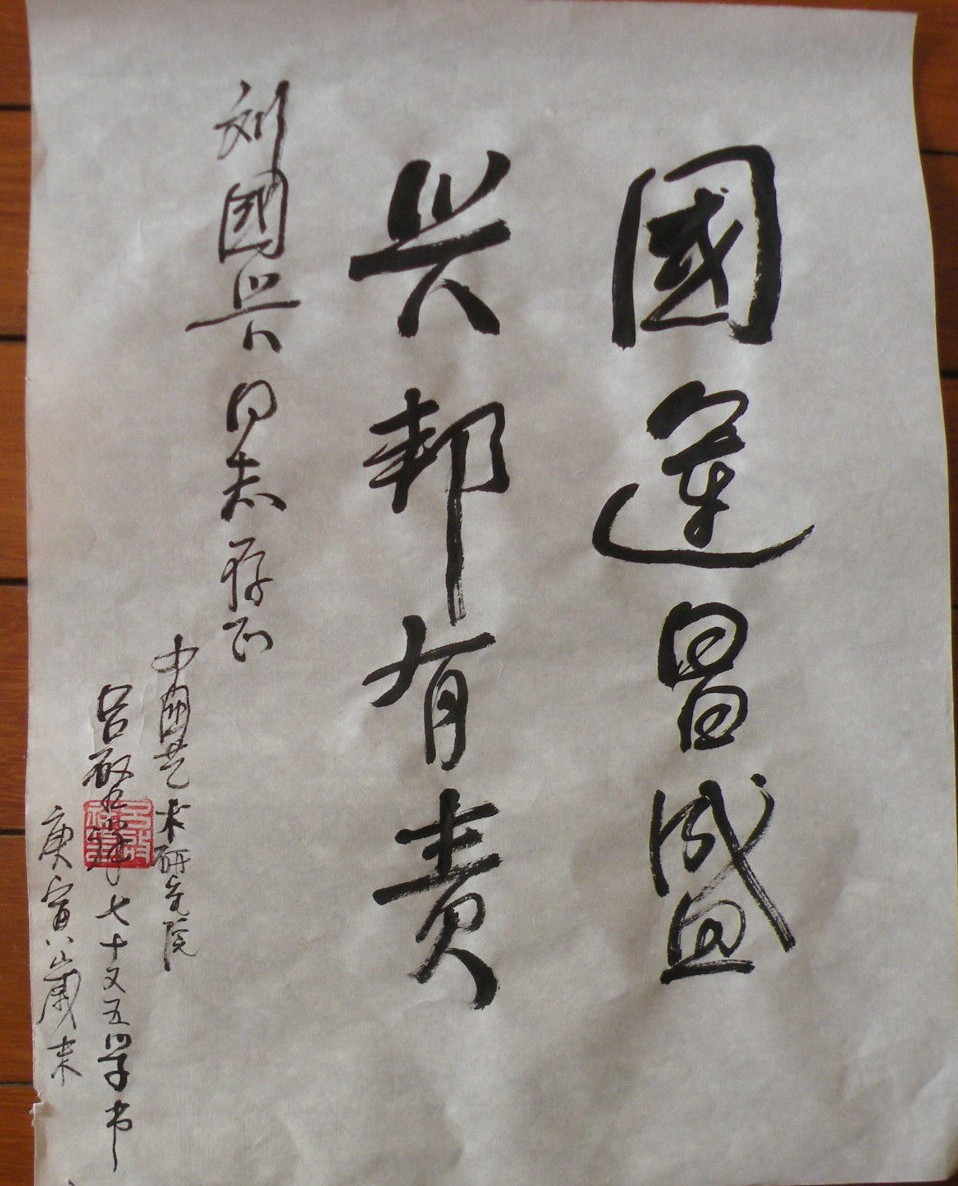 國運昌盛
兴邦有责
刘國兴同志存正
中国艺术研究院
吕啟祥七十又五学书
庚寅岁末